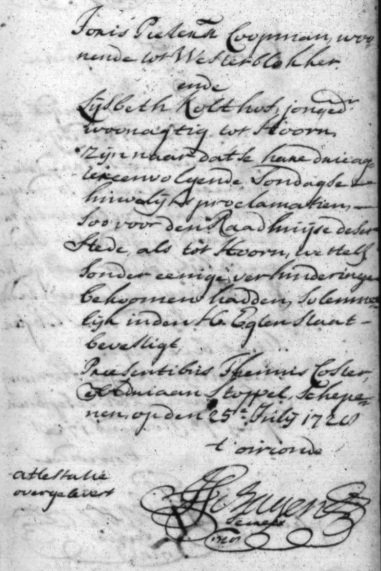 Jonis Pietersz Coopman, woo
nende tot Westerblokker
ende
Lijsbeth Kolthof, jonged.
woonagtig tot Hoorn,
zijn naar dat se hare driee
agtereenvolgende Sondagse
huwelijks proclamatien,
soo voor den Raadhuijse deser
Stede, als tot Hoorn, wettelijk
sonder eenige verhinderinge
bekoomen hadden, solemne
lijk in den H. Egten Staat
bevestigt
Præsentibus Theunis Coster,
Adriaan Stoppel, Schepe
nen, op den 25e July 1728
t' oirconde
attestatie
overgelevert
Secrets